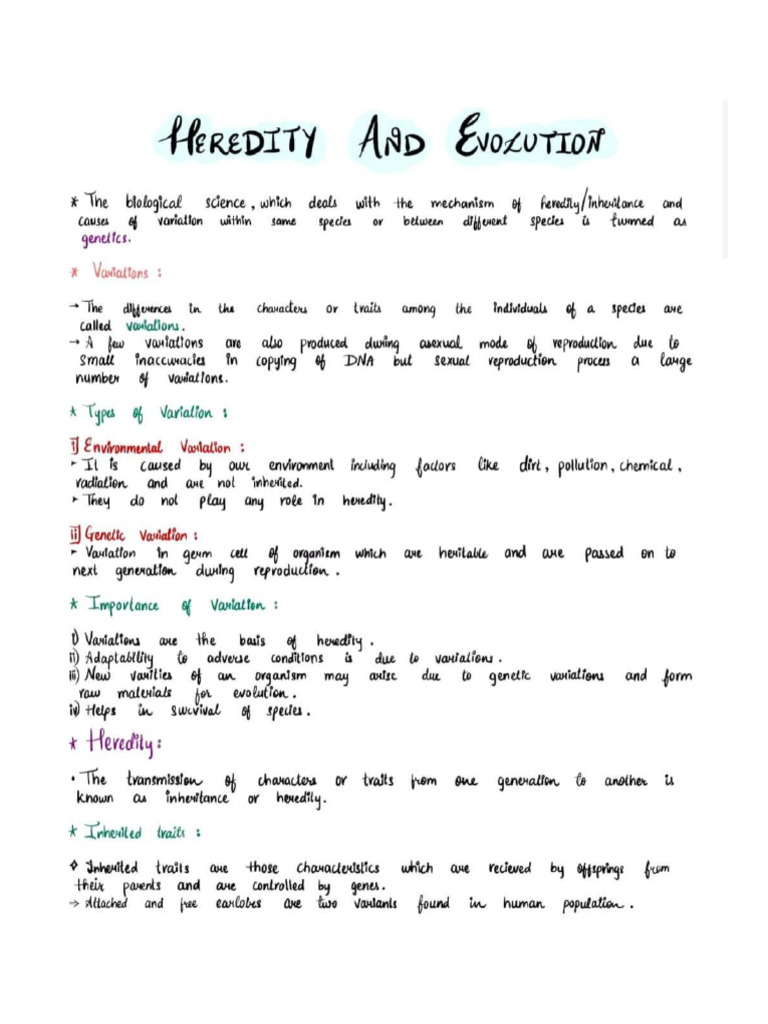 HEREDITY AND EVOLUTION
* The biological science, which deals with the mechanism of heredity/inheritance and
causes of variation within same species or between different species is turmed as
genetics.
* Variations :
→ The differences in the characters or traits among the individuals of a species are
called variations.
→ A few variations are also produced during asexual mode of reproduction due to
small inaccuracies in copying of DNA but sexual reproduction process a large
number of variations.
* Types of Variation :
i] Environmental Variation :
► It is caused by our environment including factors like dirt, pollution, chemical,
radiation and are not inherited.
► They do not play any role in heredity.
ii] Genetic Variation :
► Variation in germ cell of organism which are heritable and are passed on to
next generation during reproduction.
* Importance of Variation :
i) Variations are the basis of heredity.
ii) Adaptability to adverse conditions is due to variations.
iii) New varities of an organism may arise due to genetic variations and form
raw materials for evolution.
iv) Helps in survival of species.
* Heredity:
• The transmission of characters or traits from one generation to another is
known as inheritance or heredity.
* Inherited traits :
❖ Inherited traits are those characteristics which are recieved by offsprings from
their parents and are controlled by genes.
→ Attached and free earlobes are two variants found in human population.